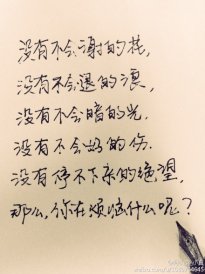 没有不会谢的花,
没有不会退的浪,
没有不会暗的光,
没有不会好的伤.
没有停不下来的绝望,
那么,你在烦恼什么呢?